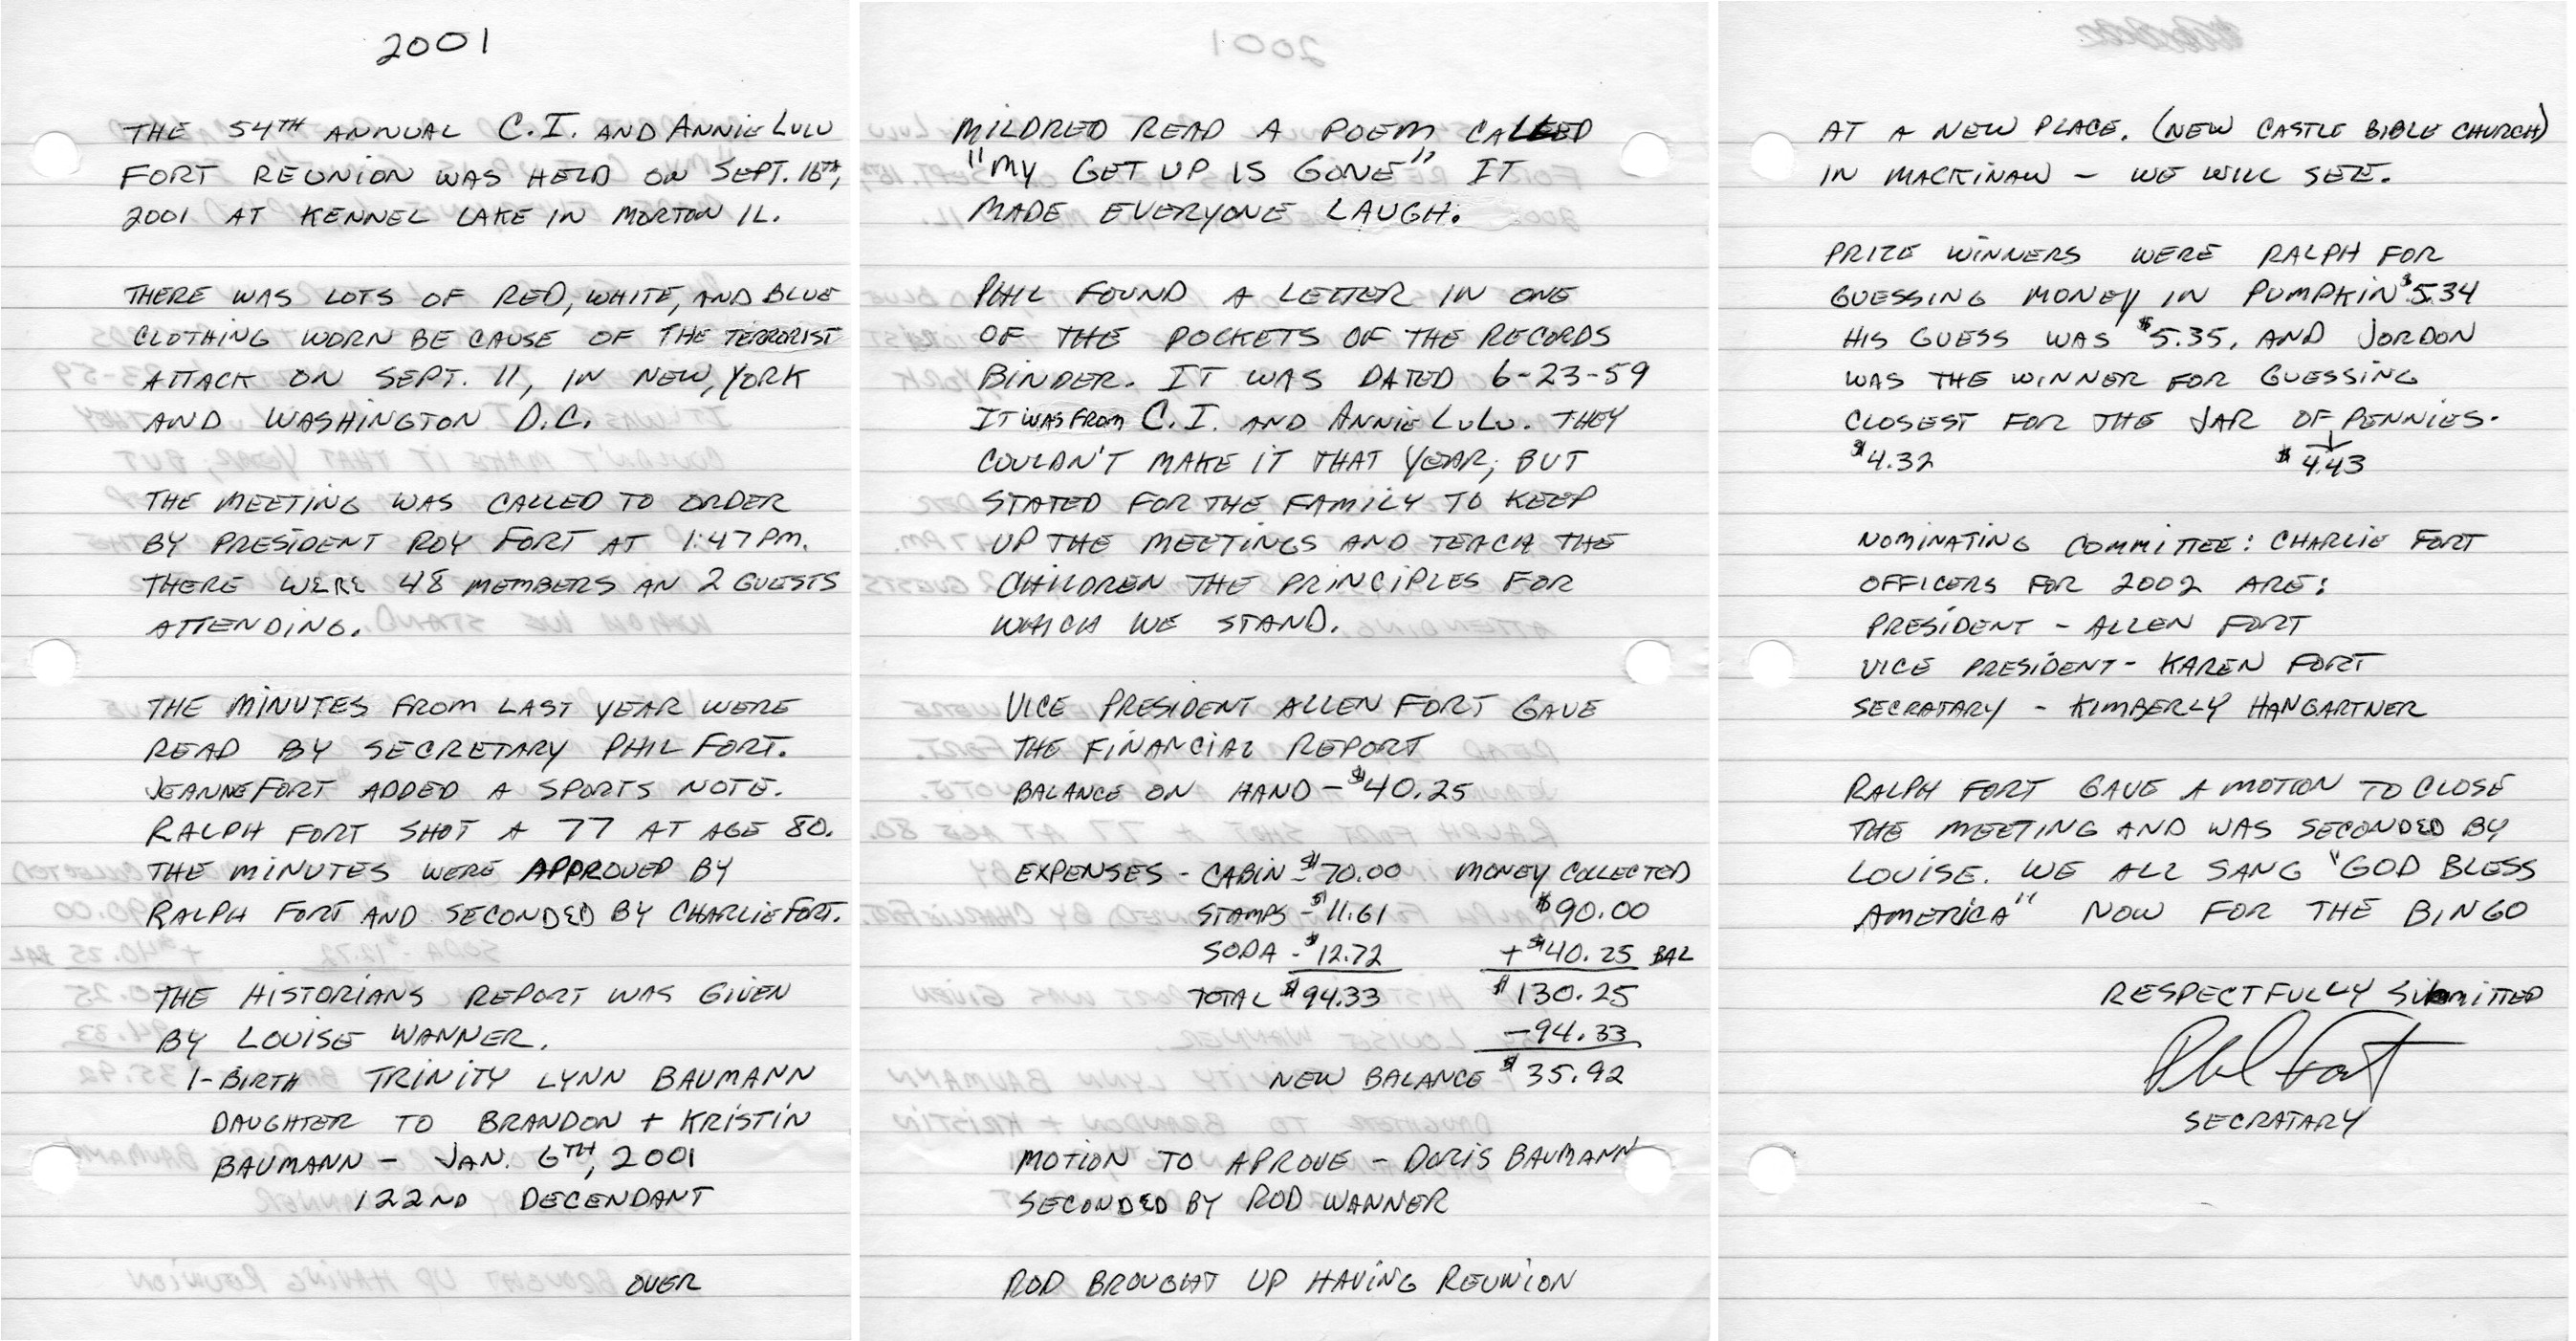 2001
THE 54TH ANNUAL C.I. AND ANNIE LULU
FORT REUNION WAS HELD ON SEPT. 16TH,
2001 AT KENNEL LAKE IN MORTON IL.
THERE WAS LOTS OF RED, WHITE, AND BLUE
CLOTHING WORN BE CAUSE OF THE TERRORIST
ATTACK ON SEPT. 11, IN NEW YORK
AND WASHINGTON D.C.
THE MEETING WAS CALLED TO ORDER
BY PRESIDENT ROY FORT AT 1:47 PM.
THERE WERE 48 MEMBERS AN 2 GUESTS
ATTENDING.
THE MINUTES FROM LAST YEAR WERE
READ BY SECRETARY PHIL FORT.
JEANNE FORT ADDED A SPORTS NOTE.
RALPH FORT SHOT A 77 AT AGE 80.
THE MINUTES WERE APPROVED BY
RALPH FORT AND SECONDED BY CHARLIE FORT.
THE HISTORIANS REPORT WAS GIVEN
BY LOUISE WANNER.
1-BIRTH TRINITY LYNN BAUMANN
DAUGHTER TO BRANDON + KRISTIN
BAUMANN - JAN. 6TH, 2001
122ND DECENDANT
OVER
MILDRED READ A POEM CALLED
"MY GET UP IS GONE" IT
MADE EVERYONE LAUGH.
PHIL FOUND A LETTER IN ONE
OF THE POCKETS OF THE RECORDS
BINDER. IT WAS DATED 6-23-59
IT WAS FROM C.I. AND ANNIE LULU. THEY
COULDN'T MAKE IT THAT YEAR, BUT
STATED FOR THE FAMILY TO KEEP
UP THE MEETINGS AND TEACH THE
CHILDREN THE PRINCIPLES FOR
WHICH WE STAND.
VICE PRESIDENT ALLEN FORT GAVE
THE FINANCIAL REPORT
BALANCE ON HAND - $40.25
EXPENSES - CABIN - $70.00 MONEY COLLECTED
STAMPS - $11.61 $90.00
SODA - $12.72 + $40.25 BAL
TOTAL $94.33 $130.25
-94.33
NEW BALANCE $35.92
MOTION TO APROVE - DORIS BAUMANN
SECONDED BY ROD WANNER
ROD BROUGHT UP HAVING REUNION
AT A NEW PLACE. (NEW CASTLE BIBLE CHURCH)
IN MACKINAW - WE WILL SEE.
PRIZE WINNERS WERE RALPH FOR
GUESSING MONEY IN PUMPKIN $5.34
HIS GUESS WAS $5.35, AND JORDON
WAS THE WINNER FOR GUESSING
CLOSEST FOR THE JAR OF PENNIES.
$4.32 $4.43
NOMINATING COMMITTEE: CHARLIE FORT
OFFICERS FOR 2002 ARE:
PRESIDENT - ALLEN FORT
VICE PRESIDENT - KAREN FORT
SECRATARY - KIMBERLY HANGARTNER
RALPH FORT GAVE A MOTION TO CLOSE
THE MEETING AND WAS SECONDED BY
LOUISE. WE ALL SANG "GOD BLESS
AMERICA" NOW FOR THE BINGO
RESPECTFULLY SUBMITTED
Phil Fort
SECRATARY